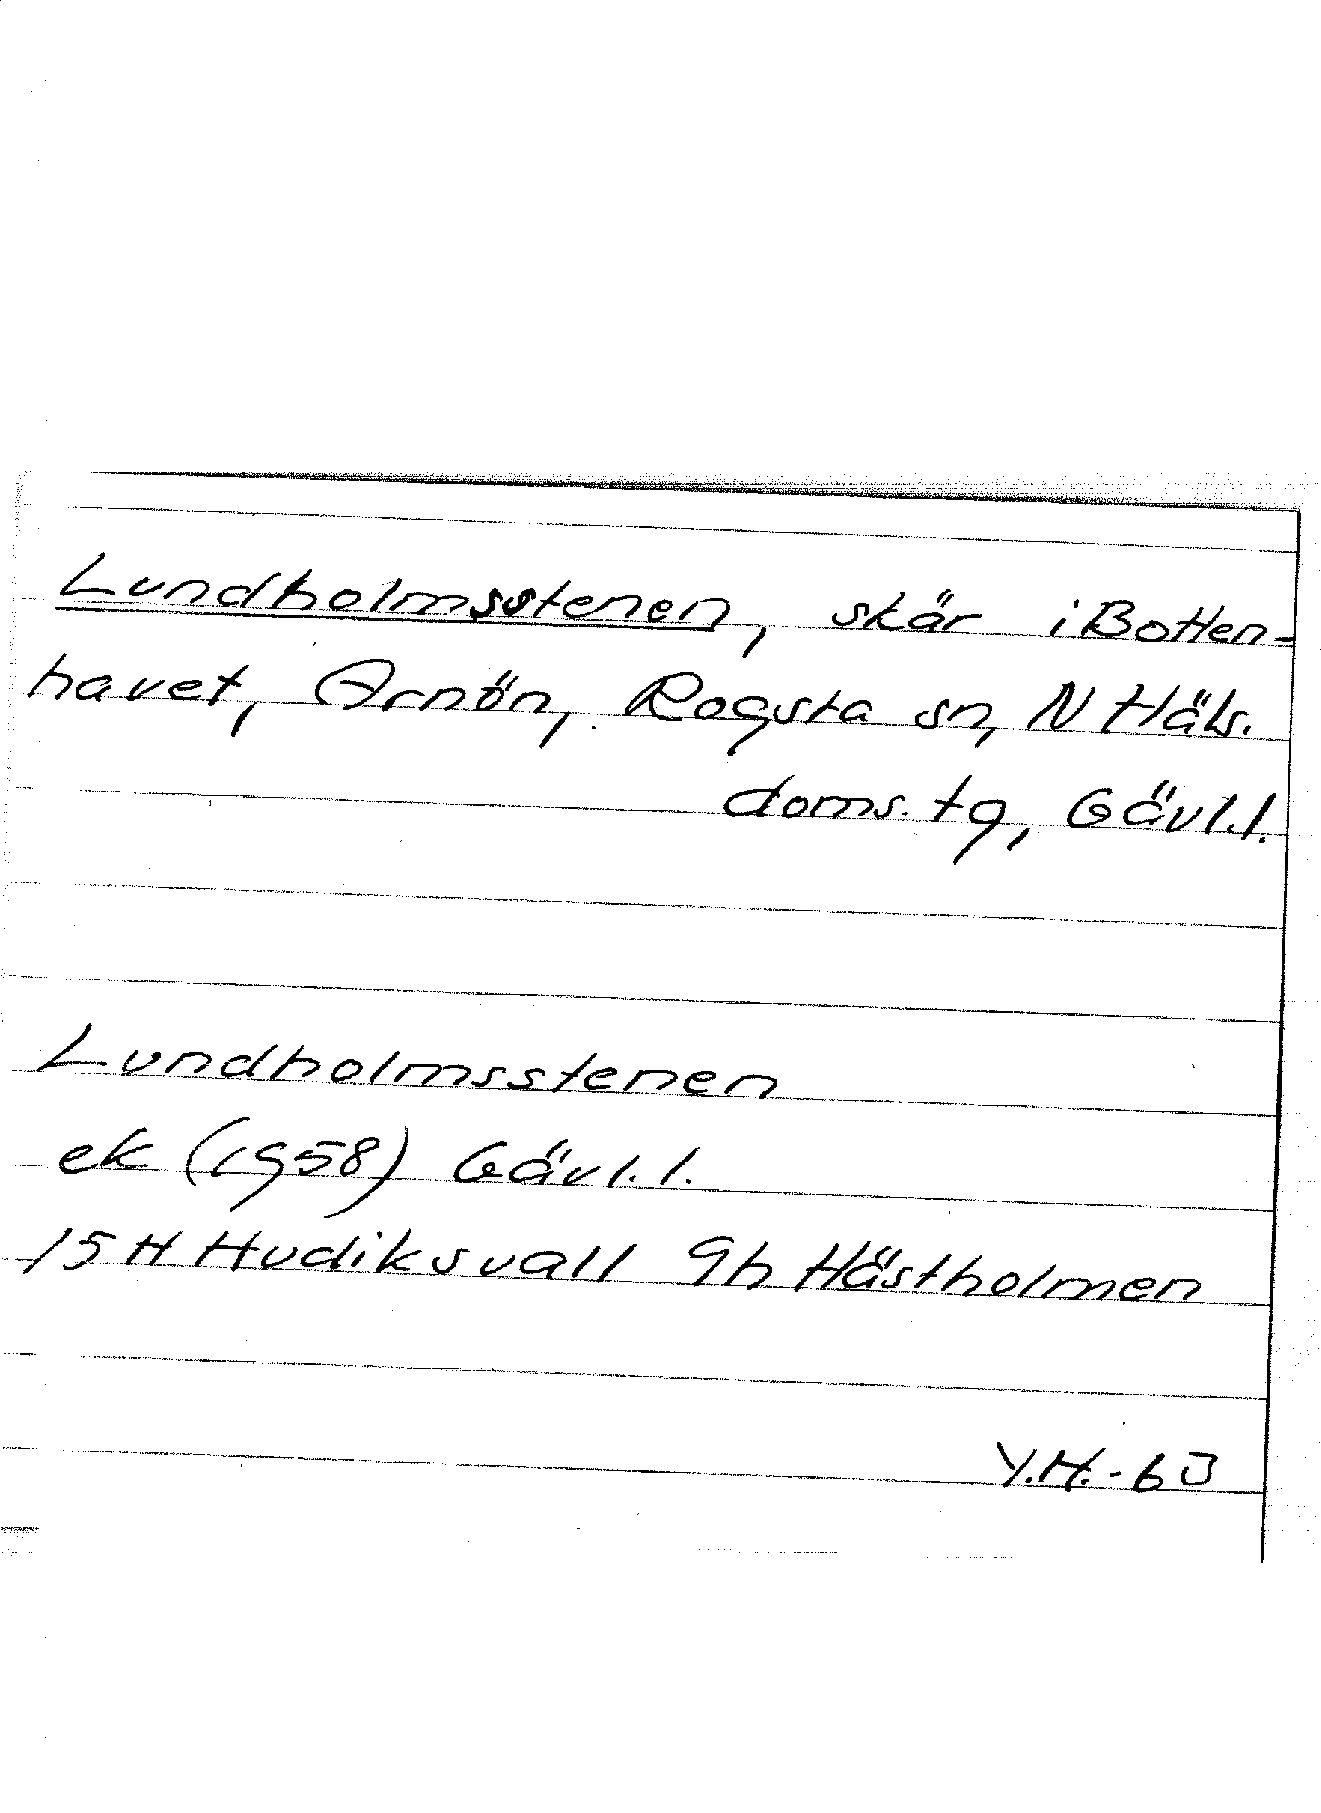 Lundholmsstenen, skär i Botten-
havet, Arnön, Rogsta sn, N Häls.
doms. tg, Gävl.l.
Lundholmsstenen
ek (1958) Gävl.l.
15H Hudiksvall 9h Hästholmen
Y.H.-63